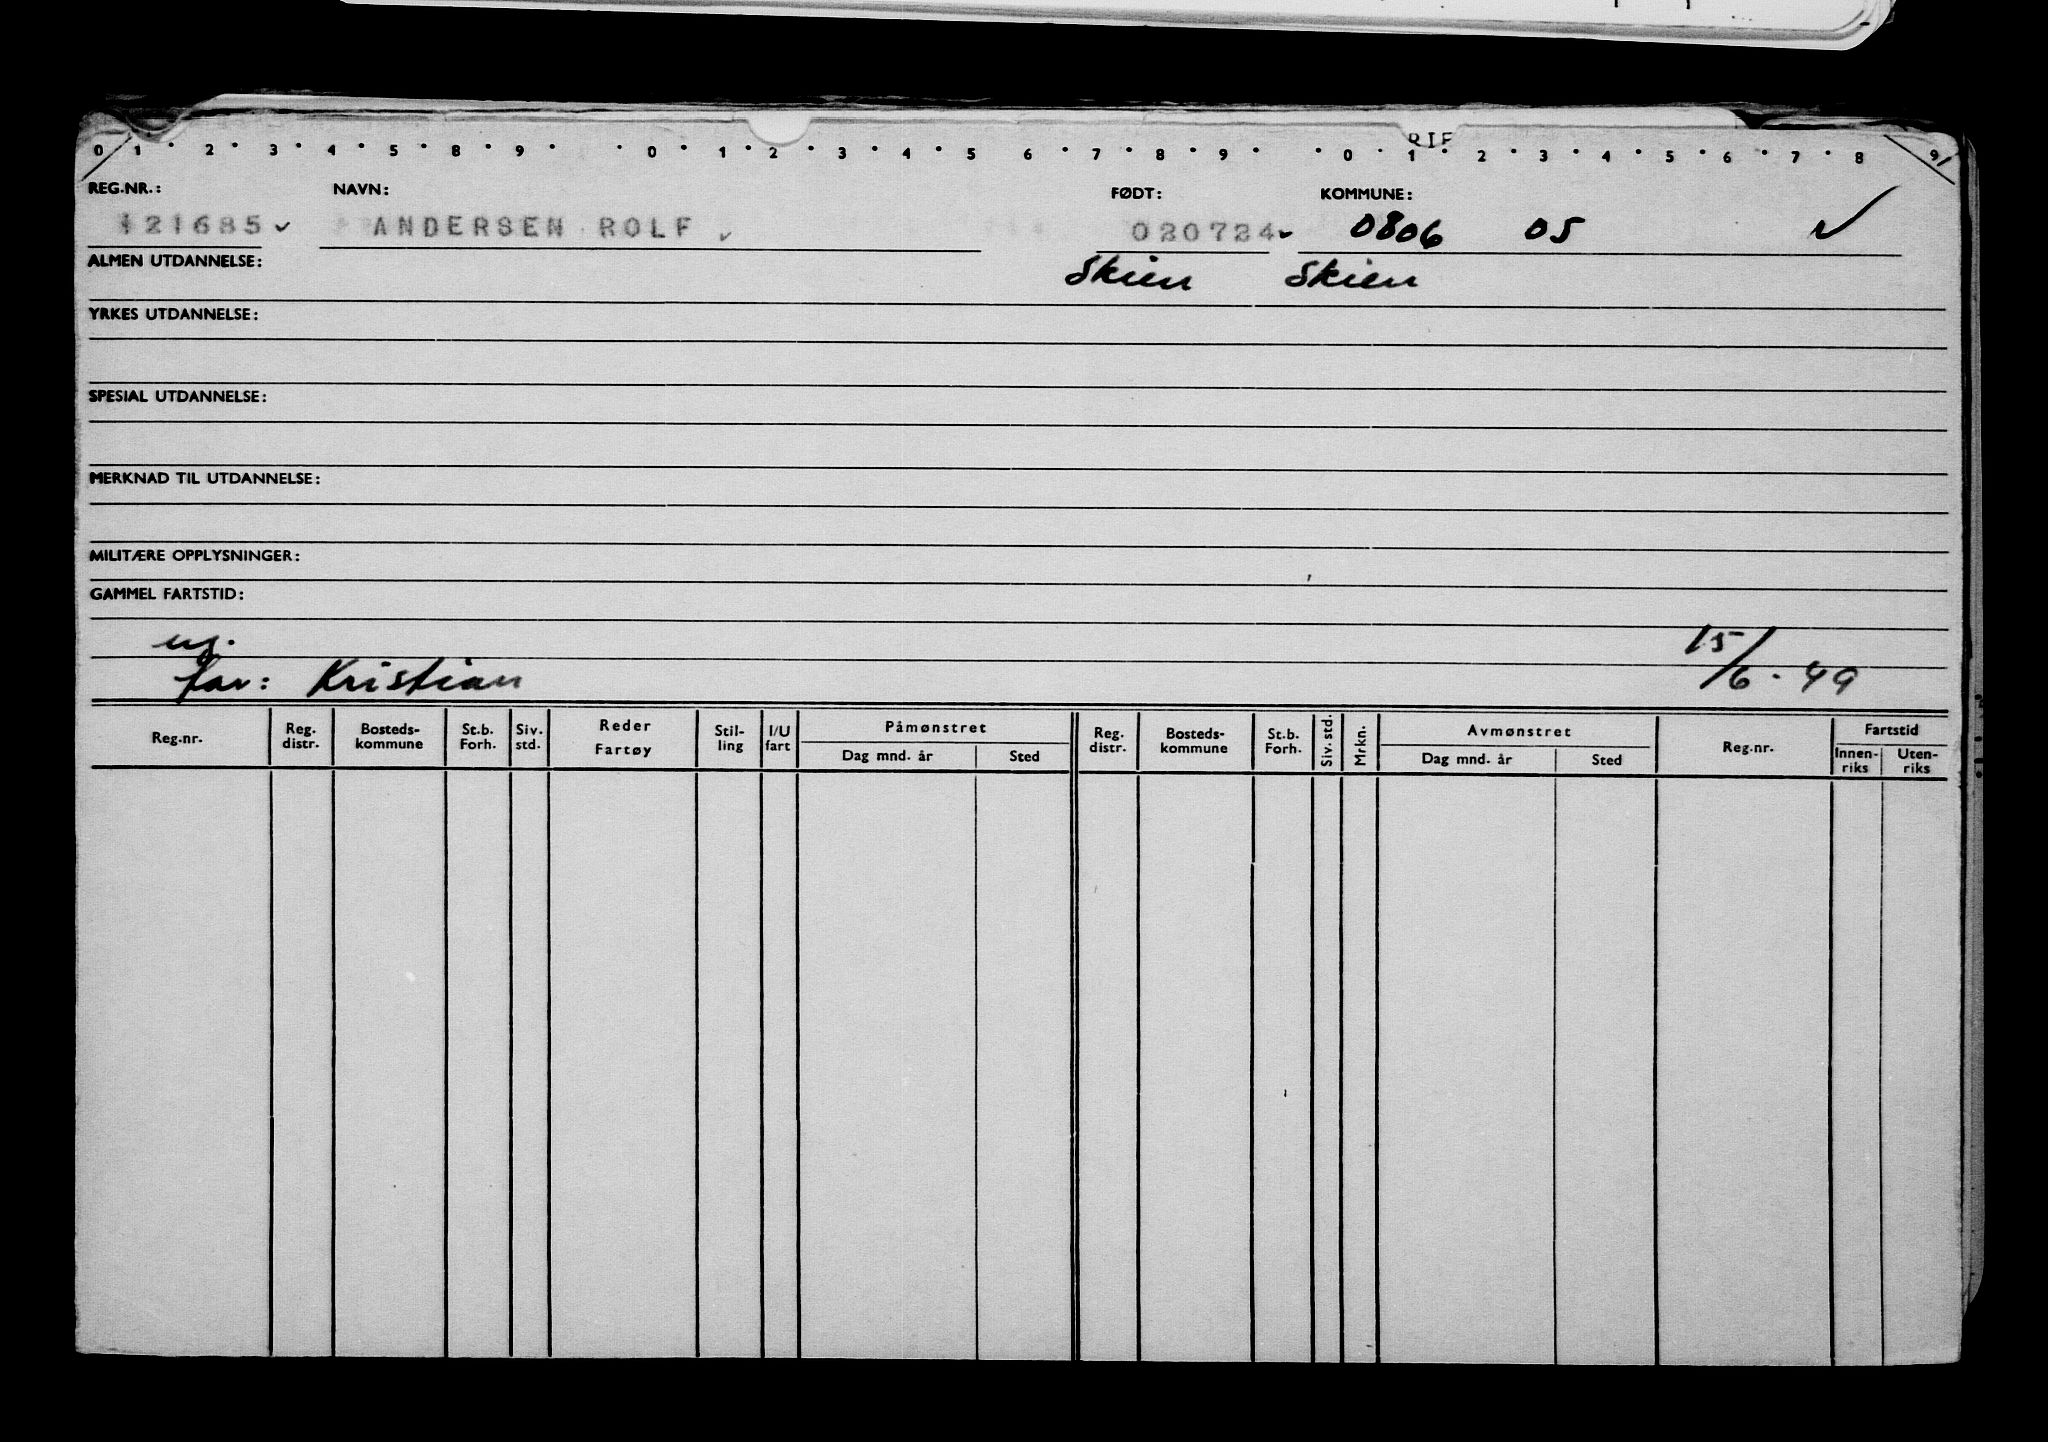 0 1 2 3 4 5 8 9 0 1 2 3 4 5 6 7 8 9 0 1 2 3 4 5 6 7 8 9
REG.NR.: NAVN: FØDT: KOMMUNE:
121685 ✓ ANDERSEN ROLF ✓ 020724 ✓ 0806 05 ✓
ALMEN UTDANNELSE: Skien Skien
YRKES UTDANNELSE:
SPESIAL UTDANNELSE:
MERKNAD TIL UTDANNELSE:
MILITÆRE OPPLYSNINGER:
GAMMEL FARTSTID:
ug.
far: Kristian 15/6-49
Reg.nr. Reg. distr. Bosteds-kommune St.b. Forh. Siv. std. Reder Fartøy Stil-ling I/U fart Påmønstret Dag mnd. år Sted Reg. distr. Bosteds-kommune St.b. Forh. Siv. std. Mrkn. Avmønstret Dag mnd. år Sted Reg.nr. Fartstid Innen-riks Uten-riks